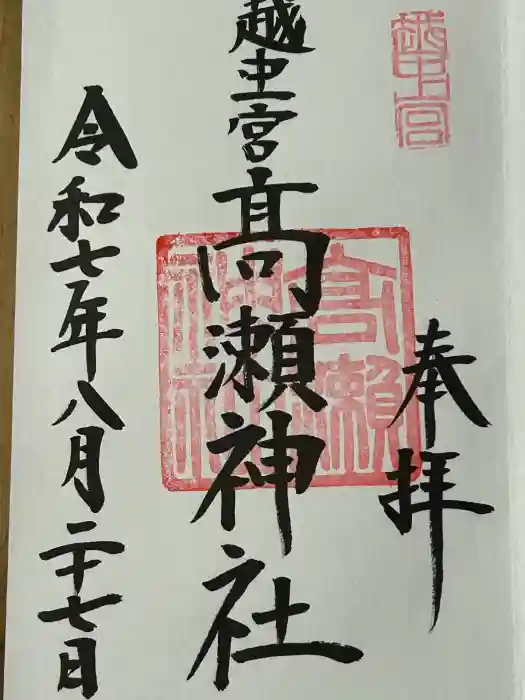 越中一宮
奉拝
越中一宮髙瀬神社
高瀬
神社
令和七年八月二十七日